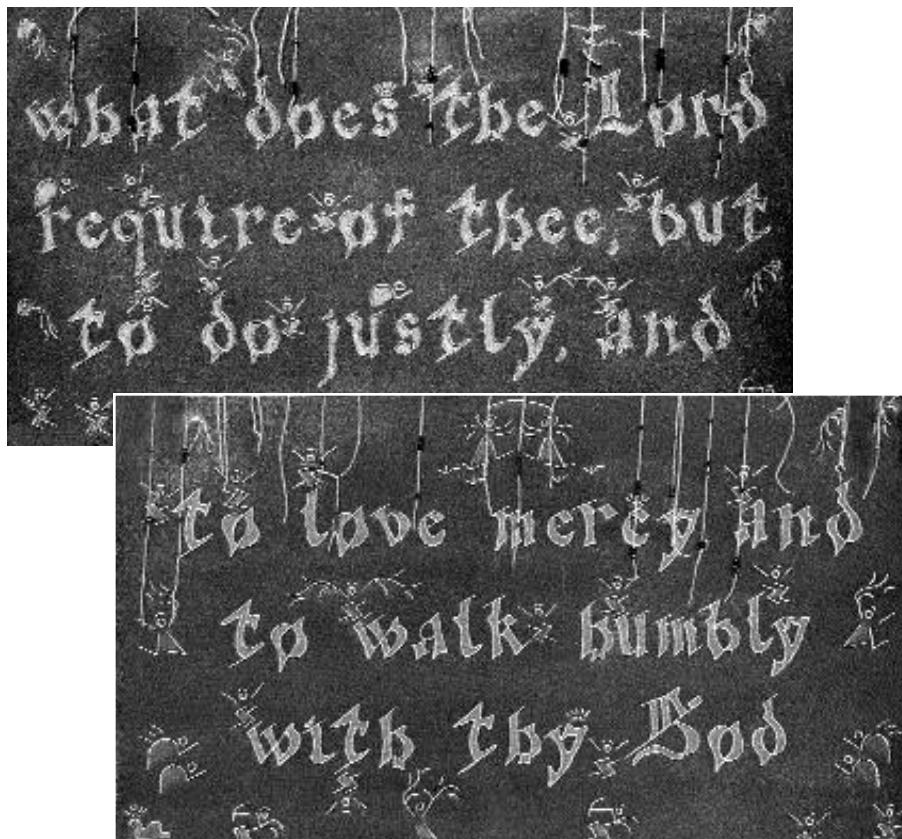 what does the Lord
require of thee, but
to do justly, and
to love mercy and
to walk humbly
with thy God